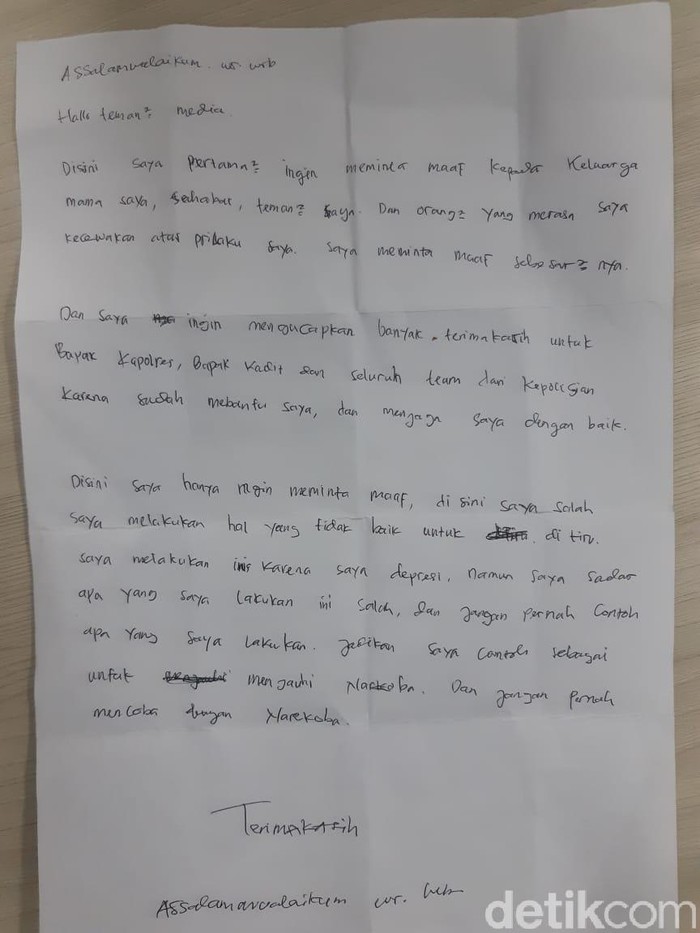 Assalamualaikum. wr. wrb
Hallo teman². media.
Disini saya pertama² ingin meminta maaf kepada keluarga
mama saya, sahabat, teman² saya. Dan orang² yang merasa saya
kecewakan atas prilaku saya. saya meminta maaf sebesar² nya.
Dan saya ingin mengucapkan banyak. terimakasih untuk
Bapak Kapolres, Bapak Kadit dan seluruh team dari kepolisian
karena sudah mebantu saya, dan menjaga saya dengan baik.
Disini saya hanya ingin meminta maaf, di sini saya salah
saya melakukan hal yang tidak baik untuk di tiru.
saya melakukan ini karena saya depresi, namun saya sadar
apa yang saya lakukan ini salah, dan jangan pernah contoh
apa yang saya lakukan. jadikan saya contoh sebagai
untuk menjauhi Narkoba. Dan jangan pernah
mencoba dengan Narekoba.
Terimakasih
Assalamarualaikum wr. wb
detikcom